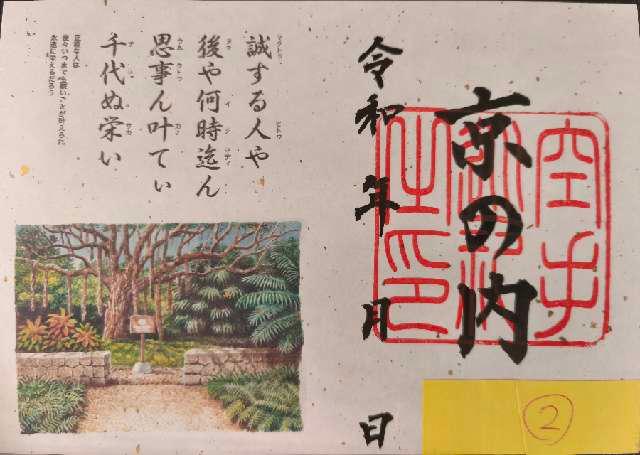 京の内
令和 年 月 日
誠する人や
後や何時迄ん
思事ん叶てぃ
千代ぬ栄い
正直な人は
後々いつまでも願いごとが叶えられ
末永に栄えるだろう
②